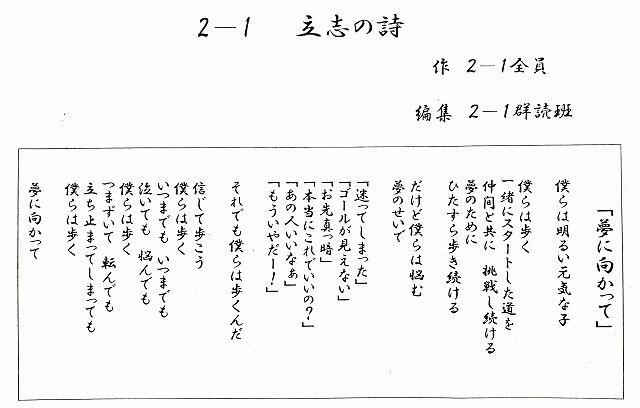 2－1　立志の詩
作　2－1全員
編集　2－1群読班
「夢に向かって」
僕らは明るい元気な子
僕らは歩く
一緒にスタートした道を
仲間と共に　挑戦し続ける
夢のために
ひたすら歩き続ける
だけど僕らは悩む
夢のせいで
「迷ってしまった」
「ゴールが見えない」
「お先真っ暗」
「本当にこれでいいの？」
「あの人いいなぁ」
「もういやだー！」
それでも僕らは歩くんだ
信じて歩こう
僕らは歩く
いつまでも　いつまでも
泣いても　悩んでも
僕らは歩く
つまずいて　転んでも
立ち止まってしまっても
僕らは歩く
夢に向かって